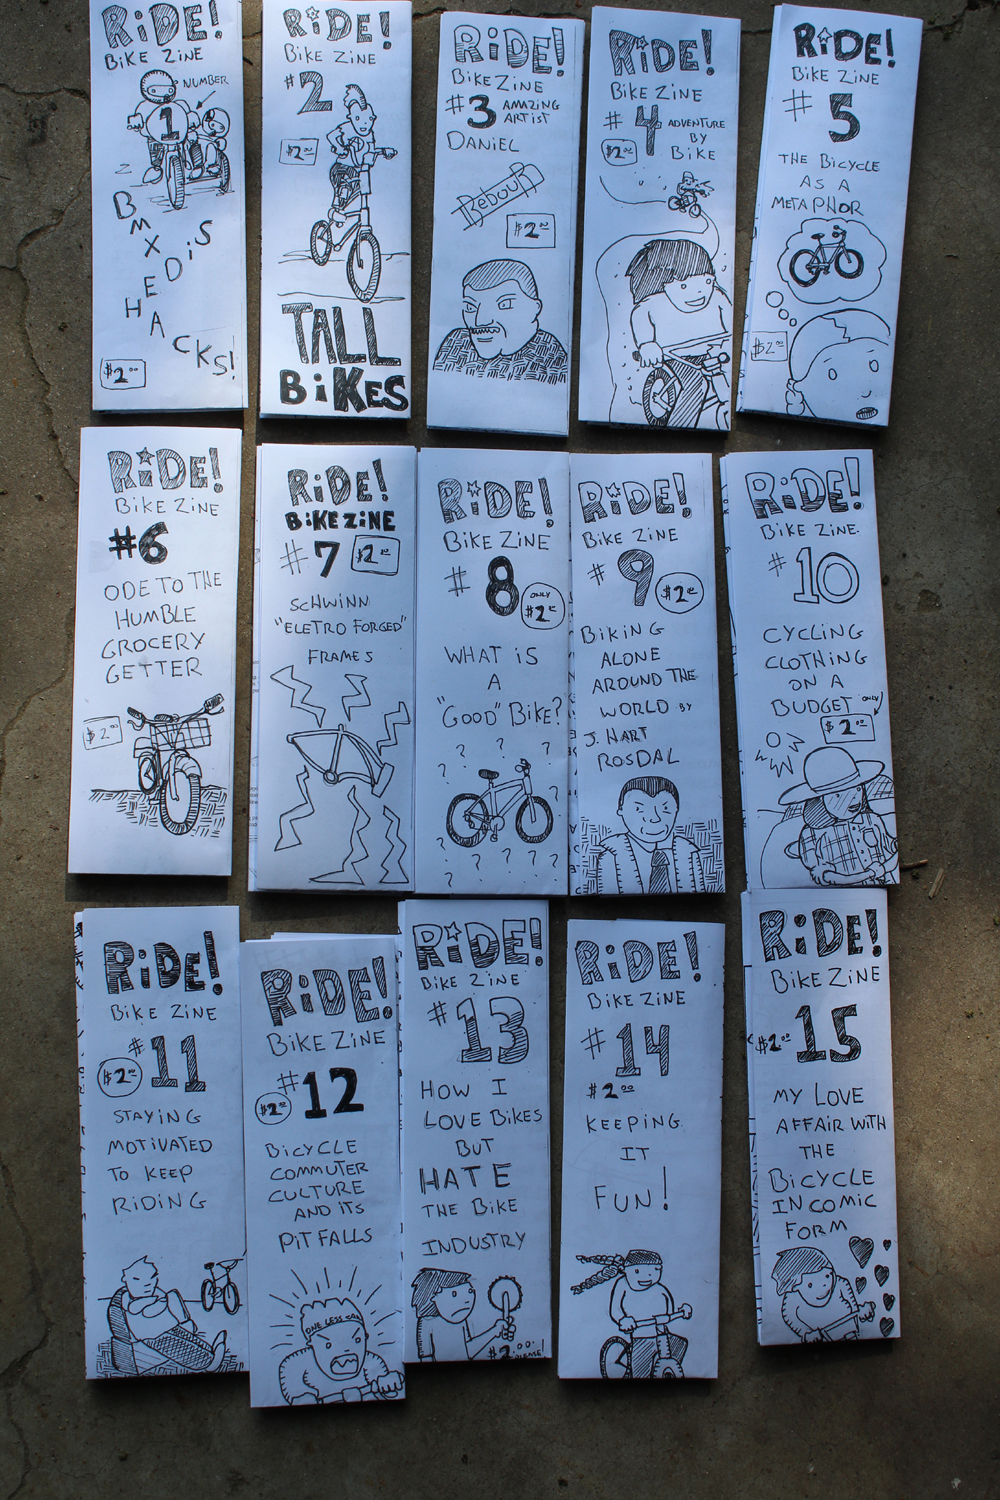 RiDE!
BiKE ZiNE
NUMBER
1
BMX ED iS
HACKS!
$2.00
RiDE!
BiKE ZiNE
#2
$2.00
TALL
BiKES
RiDE!
BiKE ZiNE
#3 AMAZiNG
ARTiST
DANiEL
REBOUR
$2.00
RiDE!
BiKE ZiNE
#4 ADVENTURE
BY
BiKE
$2.00
RiDE!
BiKE ZiNE
#5
THE BiCYCLE
AS A
METAPHOR
$2.00
RiDE!
BiKE ZiNE
#6
ODE TO THE
HUMBLE
GROCERY
GETTER
$2.00
RiDE!
BiKE ZiNE
#7 $2.00
SCHWiNN
"ELETRO FORGED"
FRAMES
RiDE!
BiKE ZiNE
#8
ONLY
$2.00
WHAT iS
A
"GOOD" BiKE?
? ? ? ? ? ? ? ? ? ? ? ?
RiDE!
BiKE ZiNE
#9
$2.00
BiKiNG
ALONE
AROUND THE
WORLD BY
J. HART
ROSDAL
RiDE!
BiKE ZiNE
#10
CYCLiNG
CLOTHiNG
ON A
BUDGET ONLY
$2.00
RiDE!
BiKE ZiNE
#11
$2.00
STAYiNG
MOTiVATED
TO KEEP
RiDiNG
RiDE!
BiKE ZiNE
#12
$2.00
BiCYCLE
COMMUTER
CULTURE
AND iTS
PiTFALLS
ONE LESS CAR
RiDE!
BiKE ZiNE
#13
HOW I
LOVE BiKES
BUT
HATE
THE BiKE
INDUSTRY
$2.00!
PLEASE!
RiDE!
BiKE ZiNE
#14
$2.00
KEEPiNG
IT
FUN!
RiDE!
BiKE ZiNE
$2.00 15
MY LOVE
AFFAiR WiTH
THE
BiCYCLE
IN COMiC
FORM